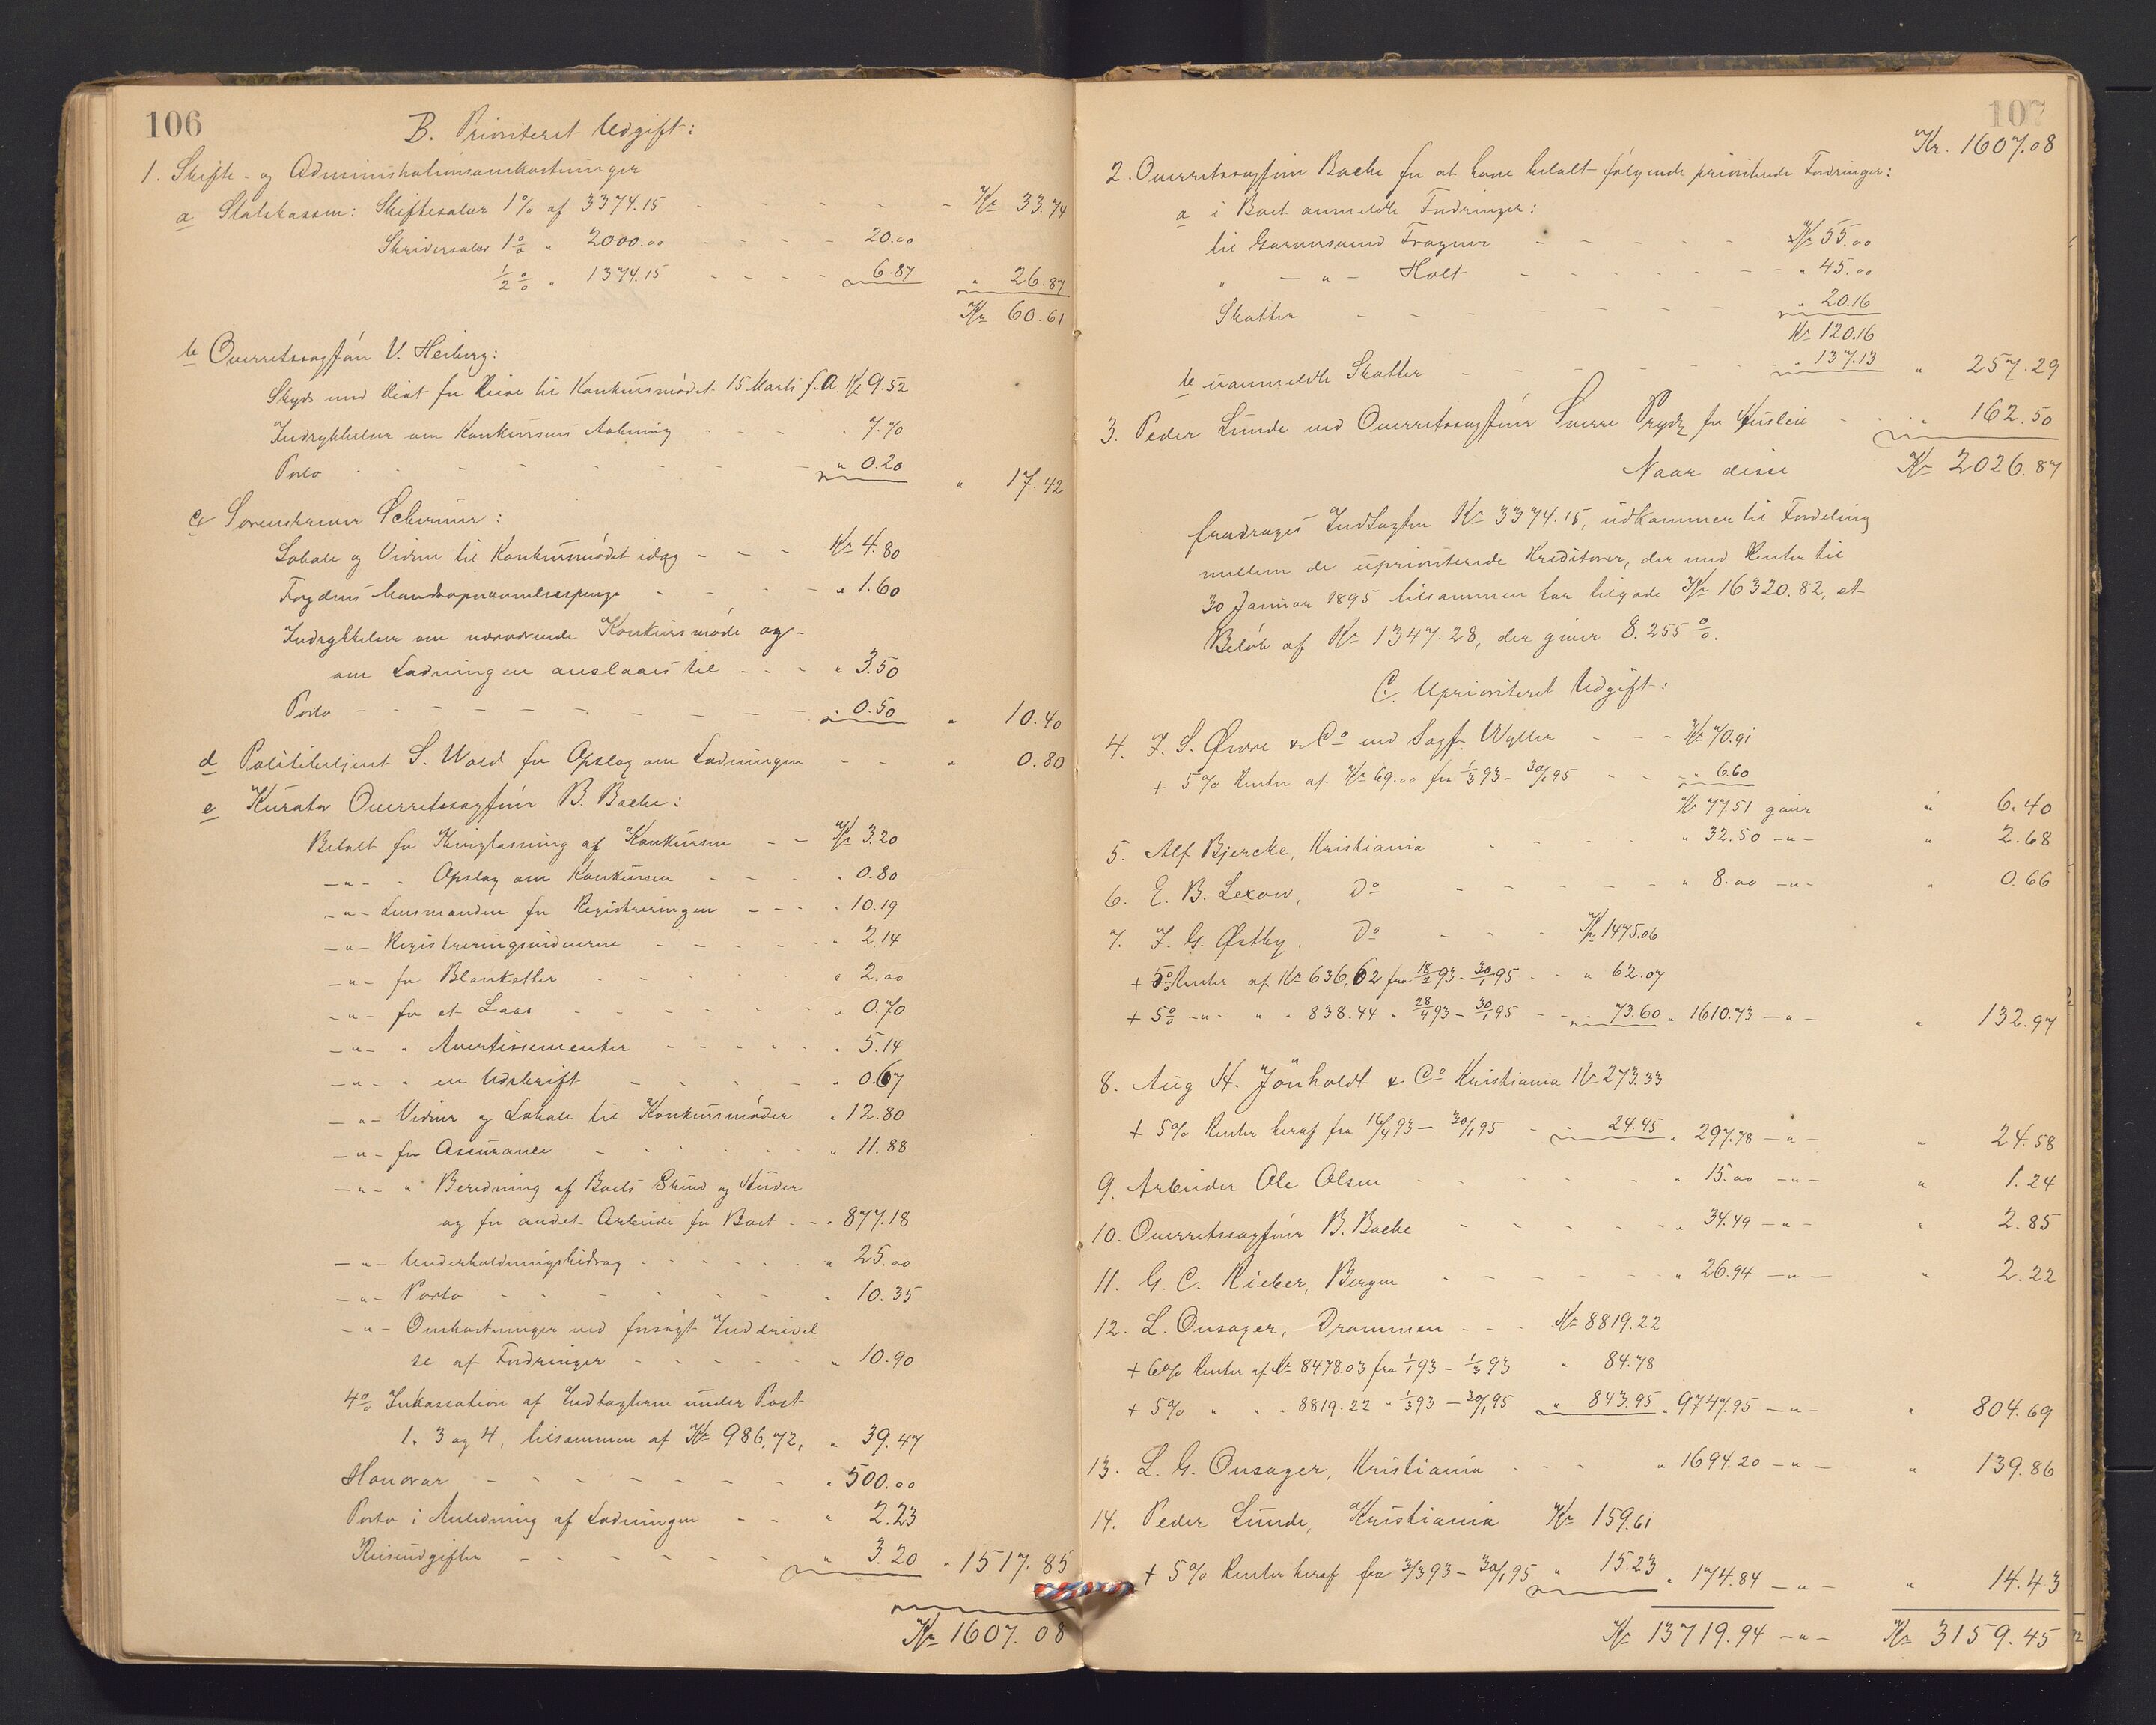 106
B. Prioriteret Udgift:
1. Skifte- og Administrationsomkostninger
a Statskassen: Skiftesalær 1% af 3374.15 - - - - - - Kr 33.74
Skriversalær 1% " 2000.00 - - - - 20.00
1/2 % " 1374.15 - - - - 6.87 " 26.87
Kr 60.61
b Overretssagfører V. Heiberg:
Skyds med Diæt for Reise til Konkursmødet 15 Marts f.A. Kr 9.52
Indrykkelser om Konkursens Aabning - - - " 7.70
Porto - - - - - - - " 0.20 " 17.42
c Sorenskriver Schrumer:
Lokale og Vidner til Konkursmødet idag - - - Kr 4.80
Fogdens Mandsopnævnelsespenge - - - " 1.60
Indrykkelser om nærværende Konkursmøde og
om Lodningen anslaaes til - - - " 3.50
Porto - - - - - - - - - " 0.50 " 10.40
d Politibetjent S. Wold for Opslag om Lodningen - - " 0.80
e Kurator Overretssagfører B. Backe:
Betalt for Thinglæsning af Konkursen - - Kr 3.20
-"- " Opslag om Konkursen - - - - " 0.80
-"- Lensmanden for Registreringen - - - " 10.19
-"- Registreringsvidnerne - - - - - " 2.14
-"- for Blanketter - - - - - " 2.00
-"- for et Laas - - - - - - " 0.70
-"- " Avertissementer - - - - - " 5.14
-"- " en Udskrift - - - - - " 0.67
-"- Vidner og Lokale til Konkursmøder " 12.80
-"- for Assurance - - - - - - " 11.88
-"- " Beredning af Boets Skind og Huder
og for andet Arbeide for Boet - - " 877.18
-"- Underholdningsbidrag - - - - - - " 25.00
-"- Porto - - - - - - - " 10.35
-"- Omkostninger ved forsøgt Inddrivel-
se af Fordringer - - - - - " 10.90
4% Inkassation af Indtægterne under Post
1. 3 og 4, tilsammen af Kr 986,72, " 39.47
Honorar - - - - - - - - " 500.00
Porto i Anledning af Lodningen - - " 2.23
Reiseudgifter - - - - - - - " 3.20 " 1517.85
Kr 1607.08
107
Kr. 1607.08
2. Overretssagfører Backe for at have betalt følgende prioriterede Fordringer:
a i Boet anmeldte Fordringer:
til Gaarmænd Frogner - - - - - - Kr 55.00
" -"- Holt - - - - - - - " 45.00
Skatter - - - - - - - - " 20.16
Kr 120.16
b uanmeldte Skatter - - - - - - " 137.13 " 257.29
3. Peder Lunde ved Overretssagfører Sverre Prydz for Husleie - - " 162.50
Naar disse Kr 2026.87
fradrages Indtægten Kr 3374.15, udkommer til Fordeling
mellem de uprioriterede Kreditorer, der med Renter til
30 Januar 1895 tilsammen har tilgode Kr 16320.82, et
Beløb af Kr 1347.28, der giver 8.255 %.
C. Uprioriteret Udgift:
4. F. S. Øvre & Co ved Sagf. Wyller - - - Kr 70.91
+ 5% Renter af Kr 69.00 fra 1/3 93 - 30/1 95 - - " 6.60
Kr 77.51 giver " 6.40
5. Alf Bjercke, Kristiania - - - - " 32.50 -"- " 2.68
6. E. B. Lexow, Do - - - - - " 8.00 -"- " 0.66
7. F. G. Østby, Do - - - Kr 1475.06
+ 5% Renter af Kr 636,62 fra 18/2 93 - 30/1 95 - - " 62.07
+ 5% -"- " " 838.44 " 28/4 93 - 30/1 95 - - " 73.60 " 1610.73 -"- " 132.97
8. Aug H. Jönholdt & Co Kristiania Kr 273.33
+ 5% Renter heraf fra 16/4 93 - 30/1 95 - " 24.45 " 297.78 -"- " 24.58
9. Arbeider Ole Olsen - - - - - - " 15.00 -"- " 1.24
10. Overretssagfører B. Backe - - - - - " 34.49 -"- " 2.85
11. G. C. Rieber, Bergen - - - - - - " 26.94 -"- " 2.22
12. L. Onsager, Drammen - - - Kr 8819.22
+ 6% Renter af Kr 8478.03 fra 1/1 93 - 1/3 93 " 84.78
+ 5% " " " 8819.22 " 1/3 93 - 30/1 95 " 843.95 " 9747.95 -"- " 804.69
13. L. G. Onsager, Kristiania - - - " 1694.20 -"- " 139.86
14. Peder Lunde, Kristiania Kr 159.61
+ 5% Renter heraf fra 3/3 93 - 30/1 95 " 15.23 " 174.84 -"- " 14.43
Kr 13719.94 -"- Kr 3159.45